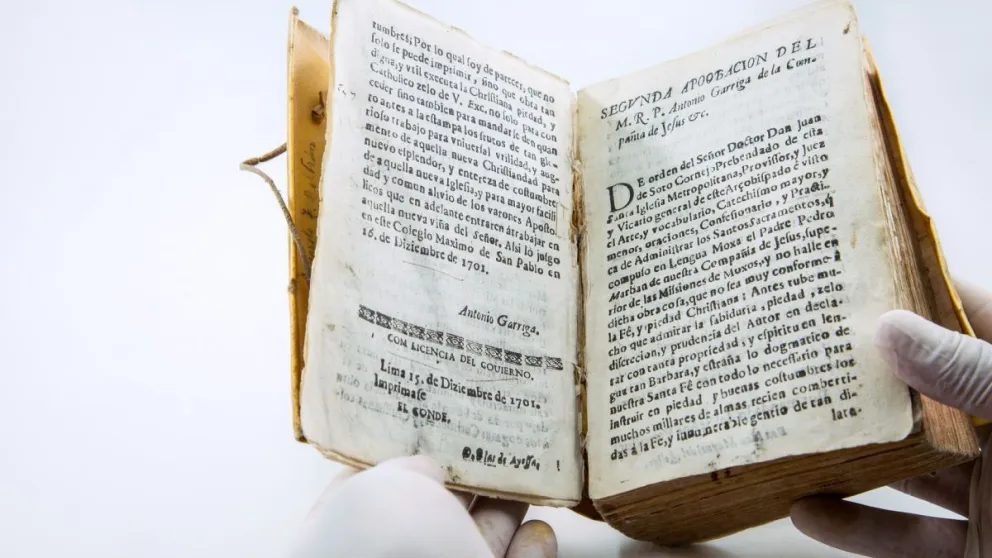 tumbres; Por lo qual soy de parecer, que no
solo se puede imprimir, sino que obra tan
digna, y vtil executa la Christiana piedad, y
Catholico zelo de V. Exc. no solo para con
ceder sino tambien para mandar se den quan
to antes a la estampa los frutos de tan glo
rioso trabajo para vniuersal vtilidad, y aug-
mento de aquella nueva Christiandad para
nuevo esplendor, y entereza de costumbre
de aquella nueva Iglesia, y para mayor facili
dad y comun alivio de los varones Aposto
licos que en adelante entraren àtrabajar en
aquella nueva viña del Señor, Asi lo juzgo
en este Colegio Maximo de San Pablo en
16. de Diziembre de 1701.
Antonio Garriga.
COM LICENCIA DEL GOUIERNO.
Lima 15. de Diziembre de 1701.
Imprimase
EL CONDE.
D. Blas de Ayessa,
SEGVNDA APOOBACION DEL
M. R. P. Antonio Garriga de la Com-
pañia de Jesus &c.
DE orden del Señor Doctor Don Juan
de Soto Cornejo, Prebendado de esta
santa Iglesia Metropolitana, Provissor, y Juez
y Vicario general de este Arçobispado è visto
el Arte, y vocabulario, Catechismo mayor, y
menor, oraciones, Confesionario, y Practi-
ca de Administrar los Santos Sacramentos, q̃
compuso en Lengua Moxa el Padre Pedro
Marban de nuestra Compañia de Jesus, supe-
rior de las Missiones de Moxos, y no halle en
dicha obra cosa, que no sea muy conforme à
la Fé, y piedad Christiana; Antes tube mu-
cho que admirar la sabiduria, piedad, zelo
discrecion, y prudencia del Autor en decla-
rar con tanta propriedad, y espiritu en len-
gua tan Barbara, y estraña lo dogmatico de
nuestra Santa Fé con todo lo necessario para
instruir en piedad, y buenas costumbres los
muchos millares de almas recien comberti-
das à la Fé, y innumerable gentio de tan di
lata-